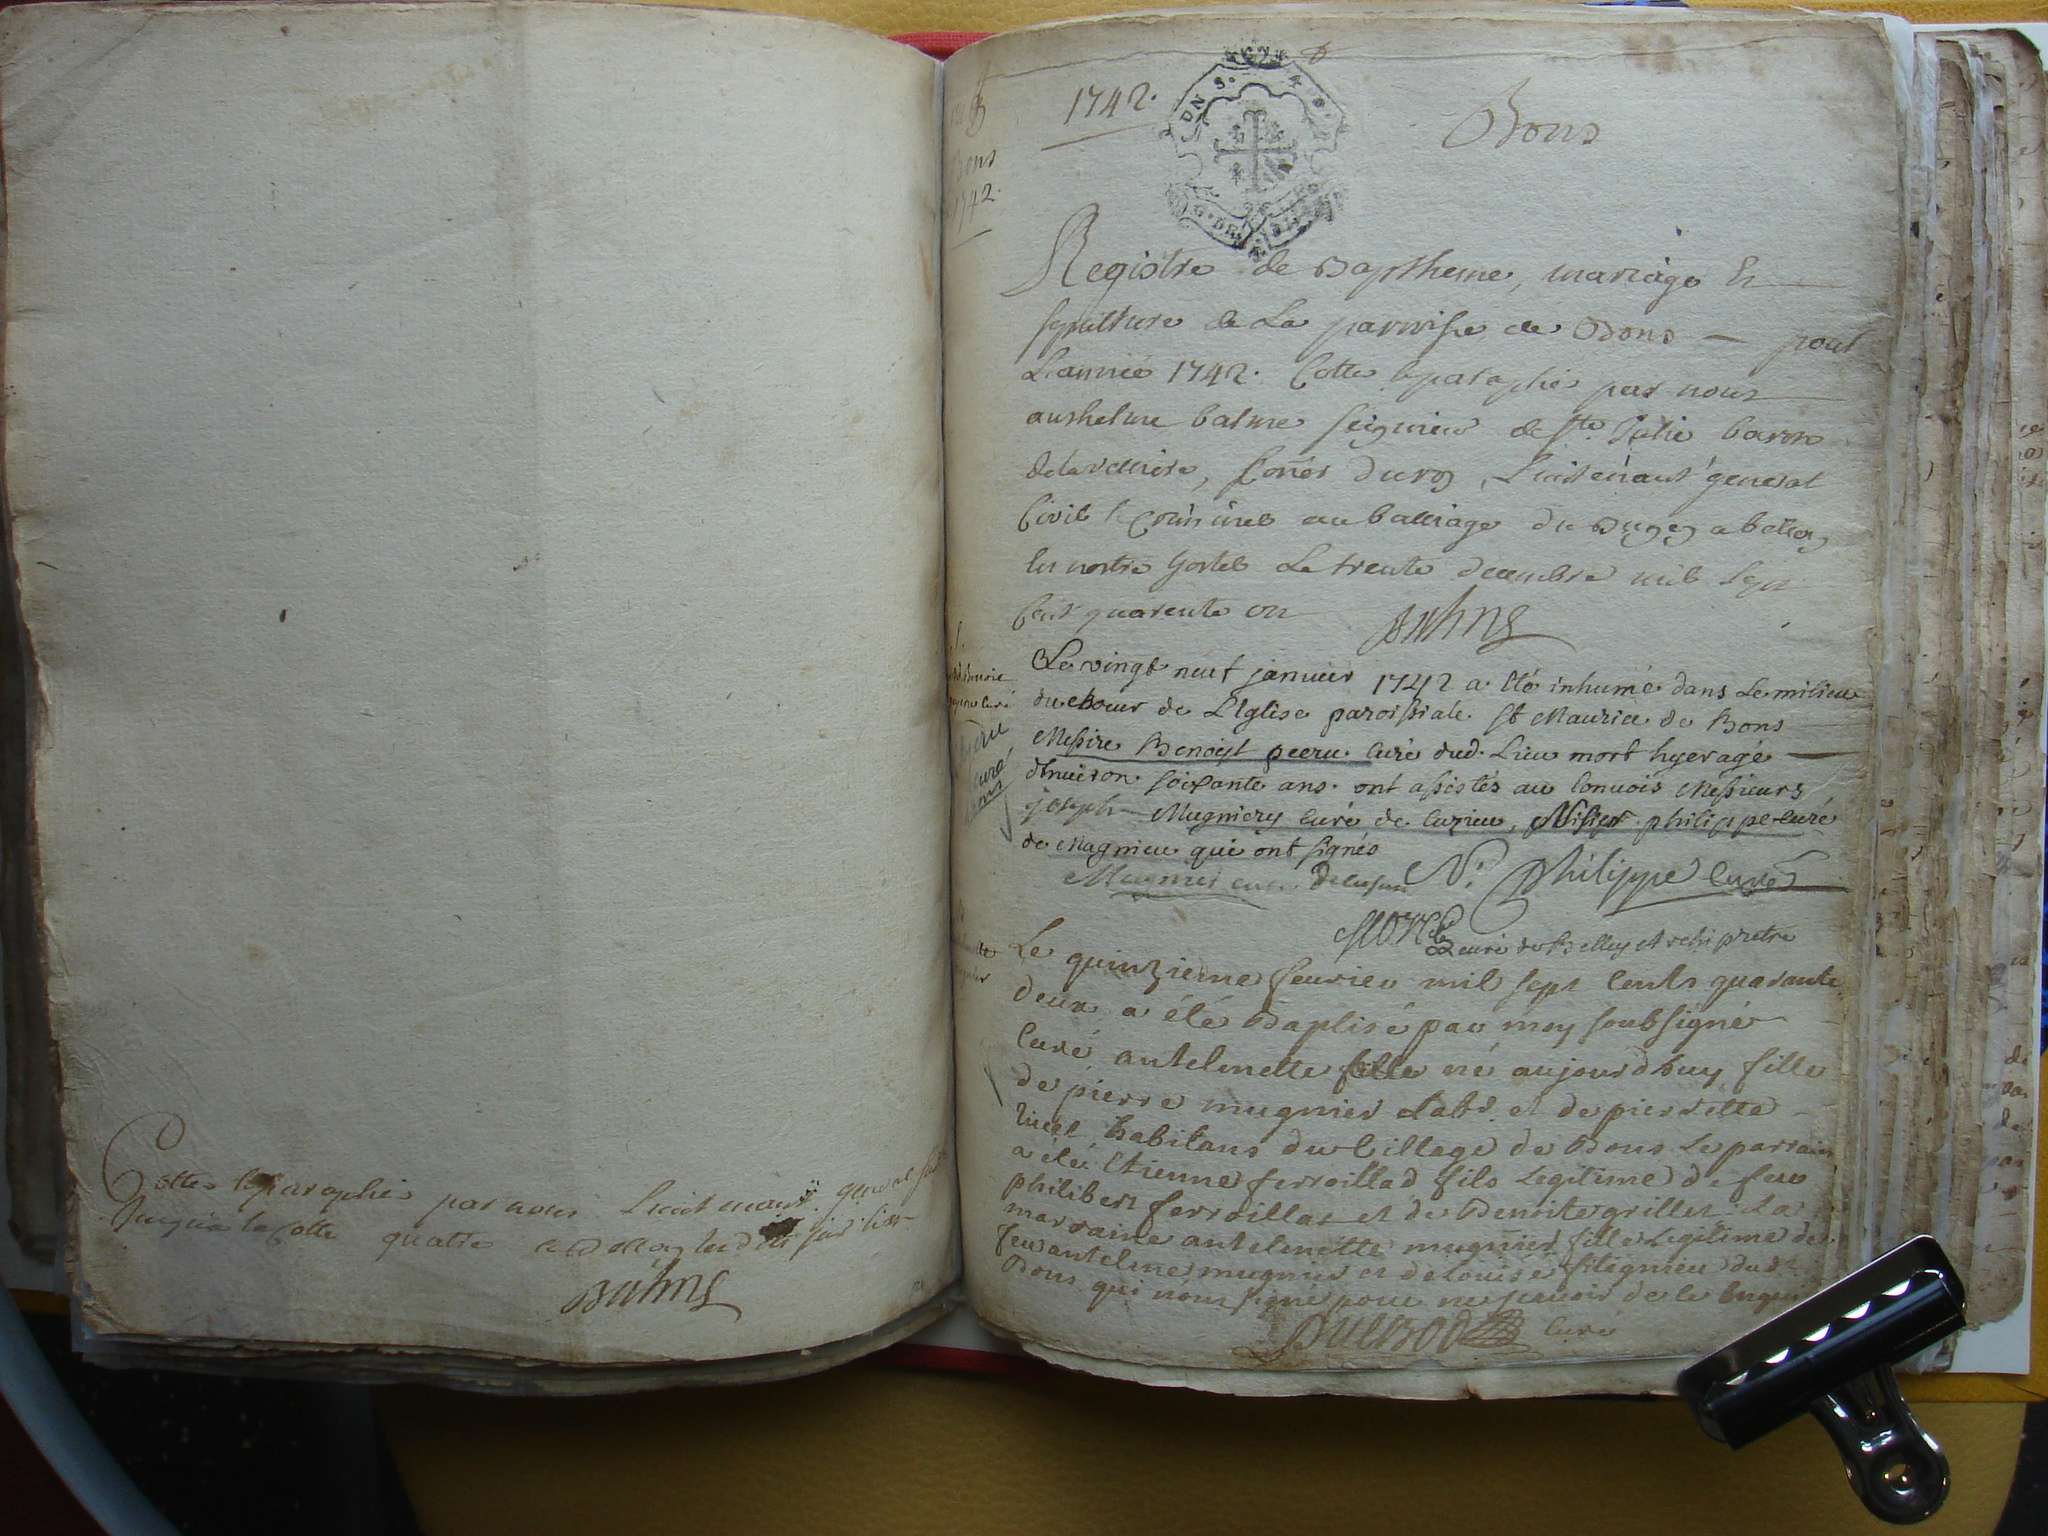 Cotte et paraphé par nous Lieutenant general
jusqu'a la cotte quatre a Belley lesd. jour
Balme
Bons
1742.
1742.
Bons
Registre de Baptheme, mariage Et
sepulture de La parroisse de Bons — pour
L'année 1742. Cotte et paraphé par nous
anthelme balme seigneur de Ste. Julie baron
, Coner du roy, Lieutenant general
Civil et Criminel au balliage du Bugey a belley
En nostre hostel Le trente decembre mil sept
Cent quarente un
Balme
Le vingt neuf janvier 1742 a été inhumé dans Le milieu
du choeur de L'Eglise paroissiale St Maurice de Bons
Messire Benoist peeru curé dud. Lieu mort hyer agé
d'environ soixante ans. ont assistés au convois Messieurs
joseph Mugniery curé de cuzieu, Messire philippe curé
de Magnieu qui ont signés
Mugnier curé de cusieu N. Philippe Curé
curé de Belley Archiprêtre
Le quinzieme feurier mil sept cents quarante
deux a été Baptisé par moy soubsigné
Curé antelmette fille né aujourdhuy fille
de pierre mugnier Labr. et de pierrette
habitans du Village de Bons Le parrain
a été Etienne ferroillad fils Legitime de feu
philibert ferroillas et de Benoite grillet La
marraine antelmette mugnier fille Legitime de
feu antelme mugnier et de Louise filignieu dud.
Bons qui n'ont signé pour ne scavoir de ce Enquis
curé